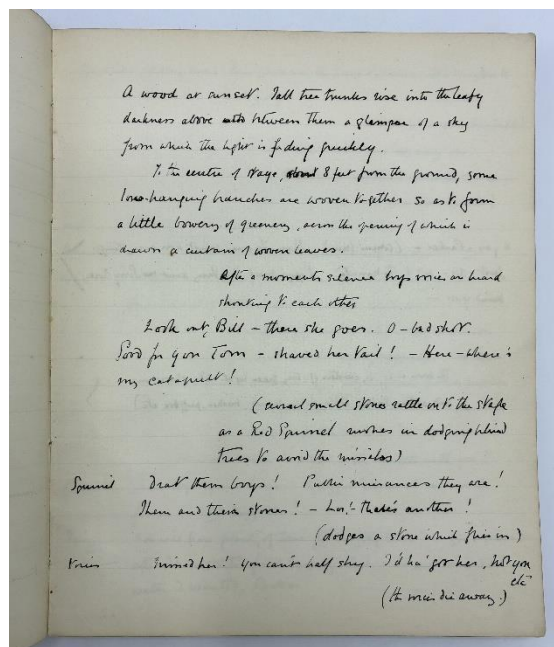 A wood at sunset. Tall tree trunks rise into the leafy
darkness above between them a glimpse of a sky
from which the light is fading quickly.
To the centre of stage, about 8 feet from the ground, some
low-hanging branches are woven together so as to form
a little bowery of greenery, across the opening of which is
drawn a curtain of woven leaves.
After a moments silence boys voices are heard
shouting to each other
Look out, Bill – there she goes. O – bad shot.
Good for you Tom – shaved her tail! – Here – where's
my catapult!
(several small stones rattle on to the stage
as a Red Squirrel rushes in dodging behind
trees to avoid the missiles)
Squirrel Drat them boys! nuisances they are!
Them and their stones! – Lor! – there's another!
(dodges a stone which flies in)
Voices Missed her! You can't half shy. I'd ha' got her, not you
etc
(the voices die away.)